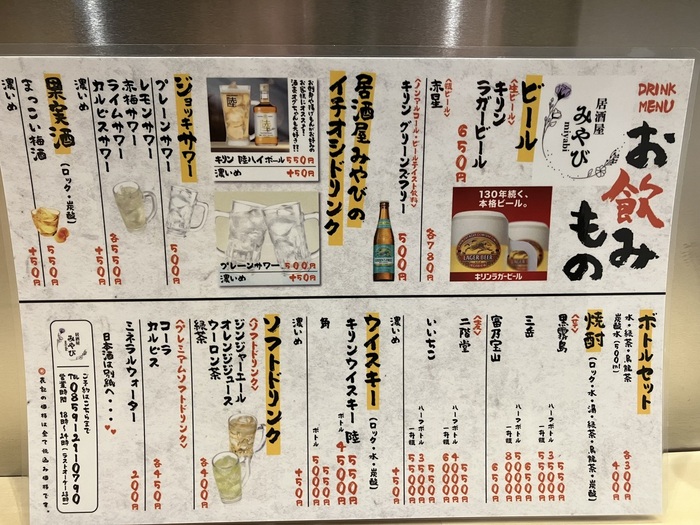 DRINK
MENU
お飲みもの
居酒屋
みやび
miyabi
ビール
〈生ビール〉
キリン
ラガービール
650円
〈瓶ビール〉
赤星
各780円
〈ノンアルコール・ビールテイスト飲料〉
キリン グリーンズフリー
500円
130年続く、
本格ビール。
LAGER BEER
キリンラガービール
居酒屋みやびの
イチオシドリンク
お刺身や揚げもんがお好みの
お客様にオススメ!
陸
キリン 陸ハイボール 550円
濃いめ +50円
プレーンサワー 500円
濃いめ +50円
ジョッキサワー
プレーンサワー
500円
レモンサワー
赤梅サワー
ライムサワー
カルピスサワー
各550円
濃いめ
+50円
果実酒
(ロック・炭酸)
まっこい梅酒
550円
濃いめ
+50円
ボトルセット
水・緑茶・烏龍茶
各300円
炭酸水(500ml)
400円
焼酎
(ロック・水・湯・緑茶・烏龍茶・炭酸)
〈芋〉
黒霧島
ハーフボトル
一升瓶
三岳
ハーフボトル
一升瓶
富乃宝山
650円
〈麦〉
二階堂
ハーフボトル
一升瓶
いいちこ
ハーフボトル
一升瓶
濃いめ
+50円
ウイスキー
(ロック・水・炭酸)
キリンウイスキー 陸
550円
ボトル
4500円
角
550円
ボトル
5000円
濃いめ
+50円
ソフトドリンク
〈ソフトドリンク〉
ジンジャーエール
オレンジジュース
ウーロン茶
緑茶
各400円
〈プレミアムソフトドリンク〉
コーラ
カルピス
各450円
ミネラルウォーター
200円
日本酒は別紙へ・・・・♥
居酒屋
みやび
ご予約はこちらまで
TEL 0859-21-0790
営業時間 18時〜24時(ラストオーダー23時)
※表記の価格は全て税込み価格です。